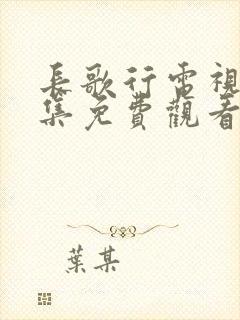 長歌行電視
集免費觀看
葉某